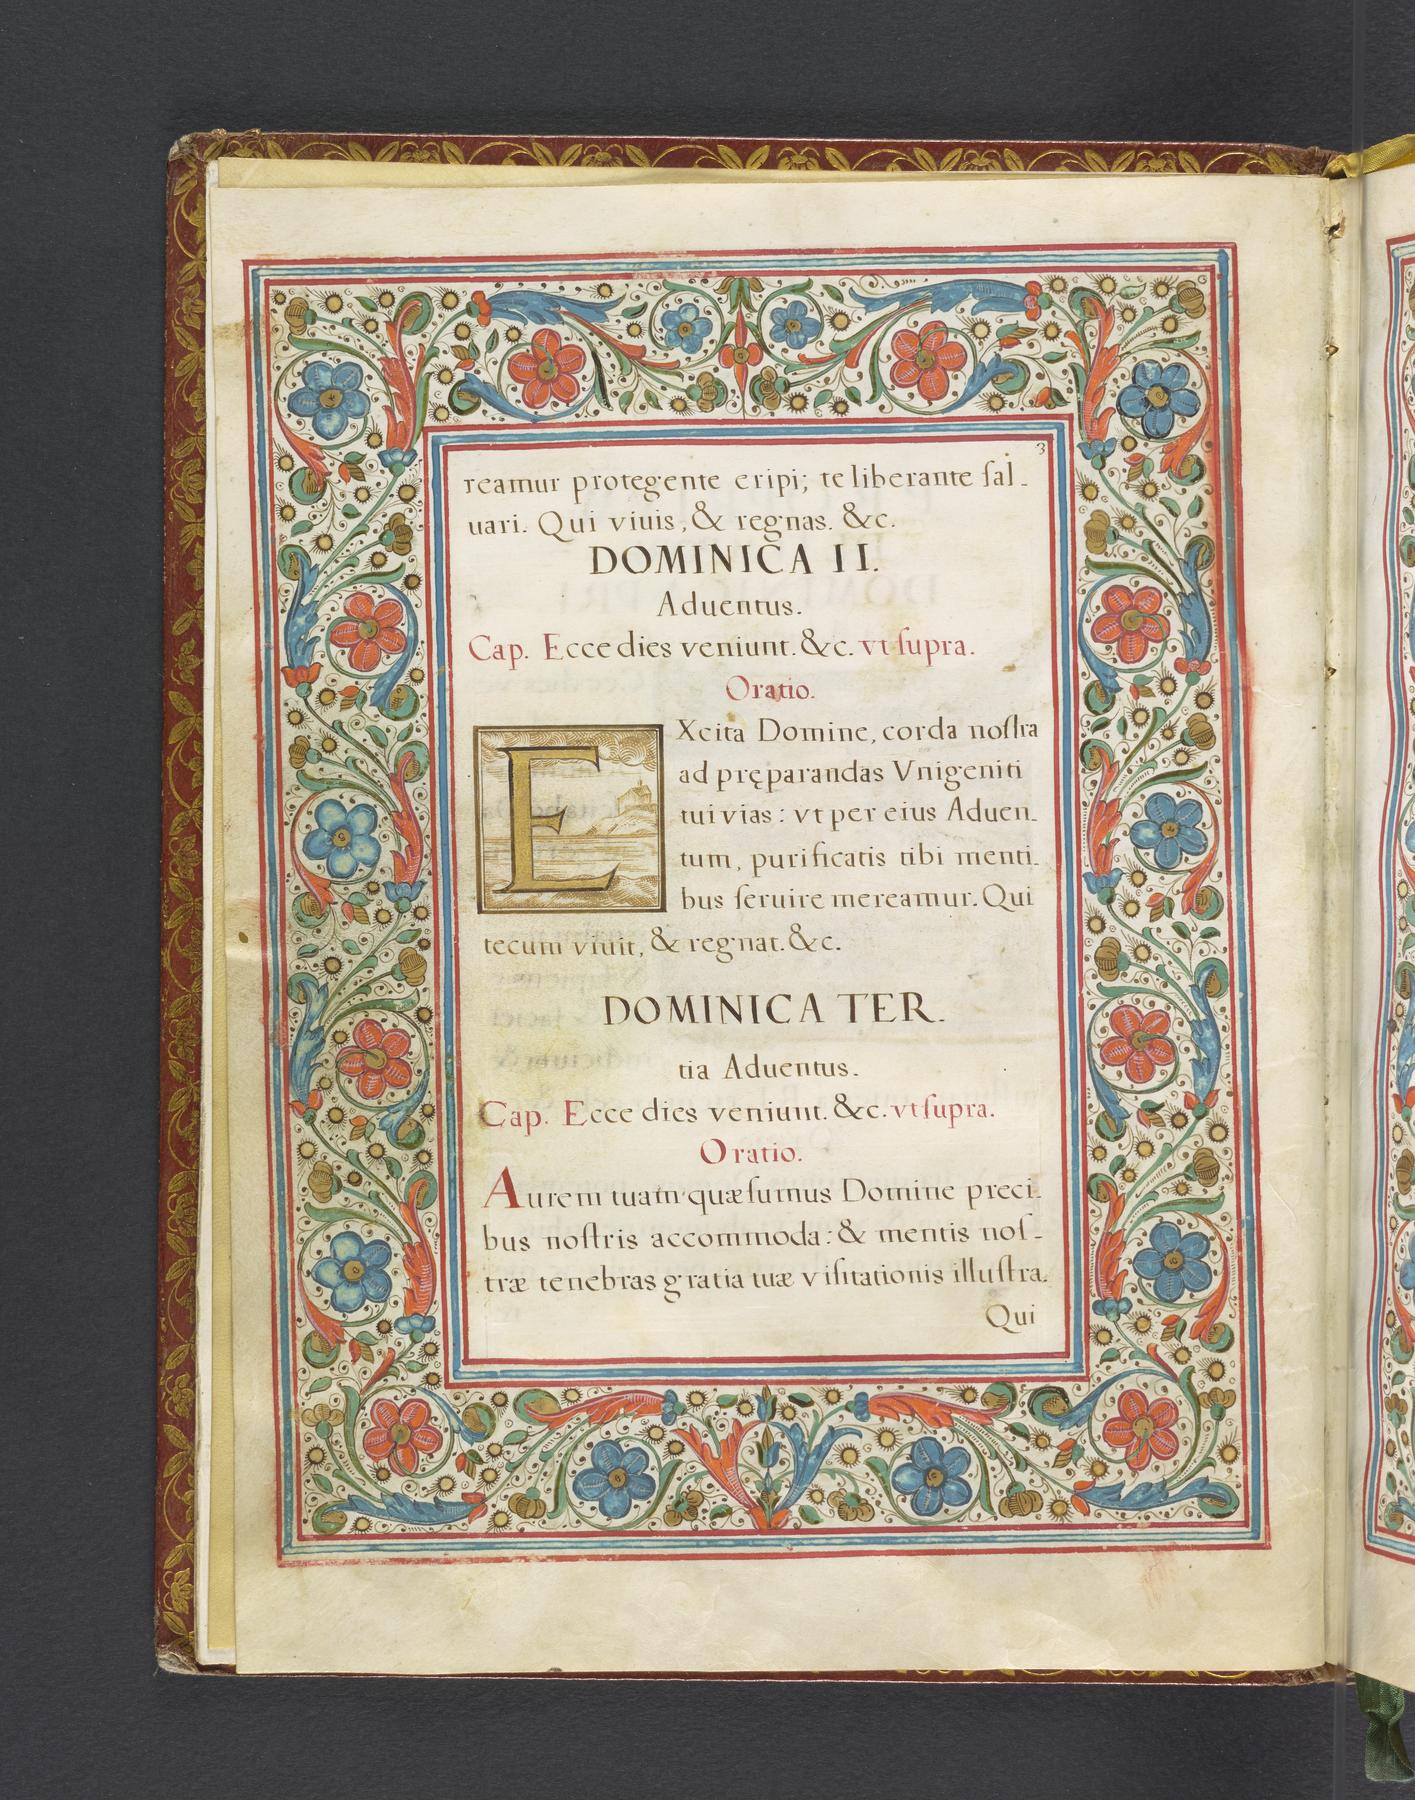 3
reamur protegente eripi; te liberante ſal-
uari. Qui viuis, & regnas. &c.
DOMINICA II.
Aduentus.
Cap. Ecce dies veniunt. &c. vt ſupra.
Oratio.
EXcita Domine, corda noſtra
ad pręparandas Vnigeniti
tui vias: vt per eius Aduen-
tum, purificatis tibi menti-
bus ſeruire mereamur. Qui
tecum viuit, & regnat. &c.
DOMINICA TER-
tia Aduentus.
Cap. Ecce dies veniunt. &c. vt ſupra.
Oratio.
Aurem tuam quæſumus Domine preci-
bus noſtris accommoda: & mentis noſ-
træ tenebras gratia tuæ viſitationis illuſtra.
Qui